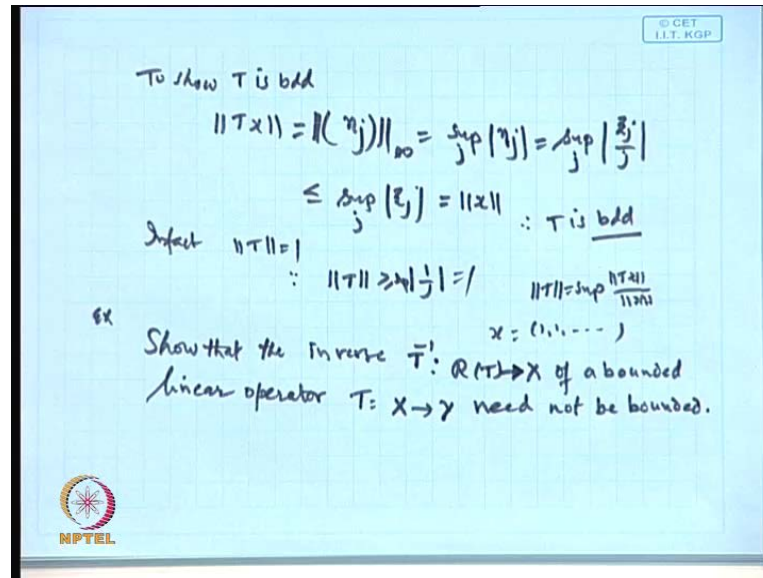 © CET
I.I.T. KGP
To show T is bdd
||Tx|| = ||(ηj)||∞ = sup_j |ηj| = sup_j |ξj/j|
≤ sup_j |ξj| = ||x|| ∴ T is bdd
Infact ||T|| = 1
∵ ||T|| ≥ sup|1/j| = 1 ||T|| = sup ||Tx||/||x||
x = (1,1,----)
Ex
Show that the inverse T⁻¹: R(T)→X of a bounded
linear operator T: X→Y need not be bounded.
NPTEL